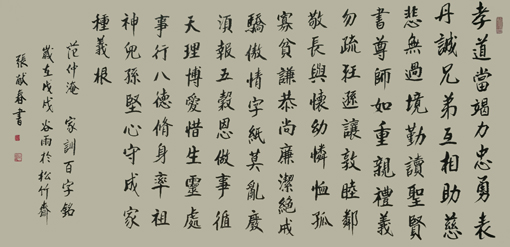 孝道當竭力忠勇表
丹誠兄弟互相助慈
悲無過境勤讀聖賢
書尊師如重親禮義
勿疏狂遜讓敦睦鄰
敬長與懷幼憐恤孤
寡貧謙恭尚廉潔絶戒
驕傲情字紙莫亂廢
須報五穀恩做事循
天理博愛惜生靈處
事行八德脩身率祖
神兒孫堅心守成家
種義根
范仲淹 家訓百字銘
歲在戊戌谷雨於松竹齋
張献春書